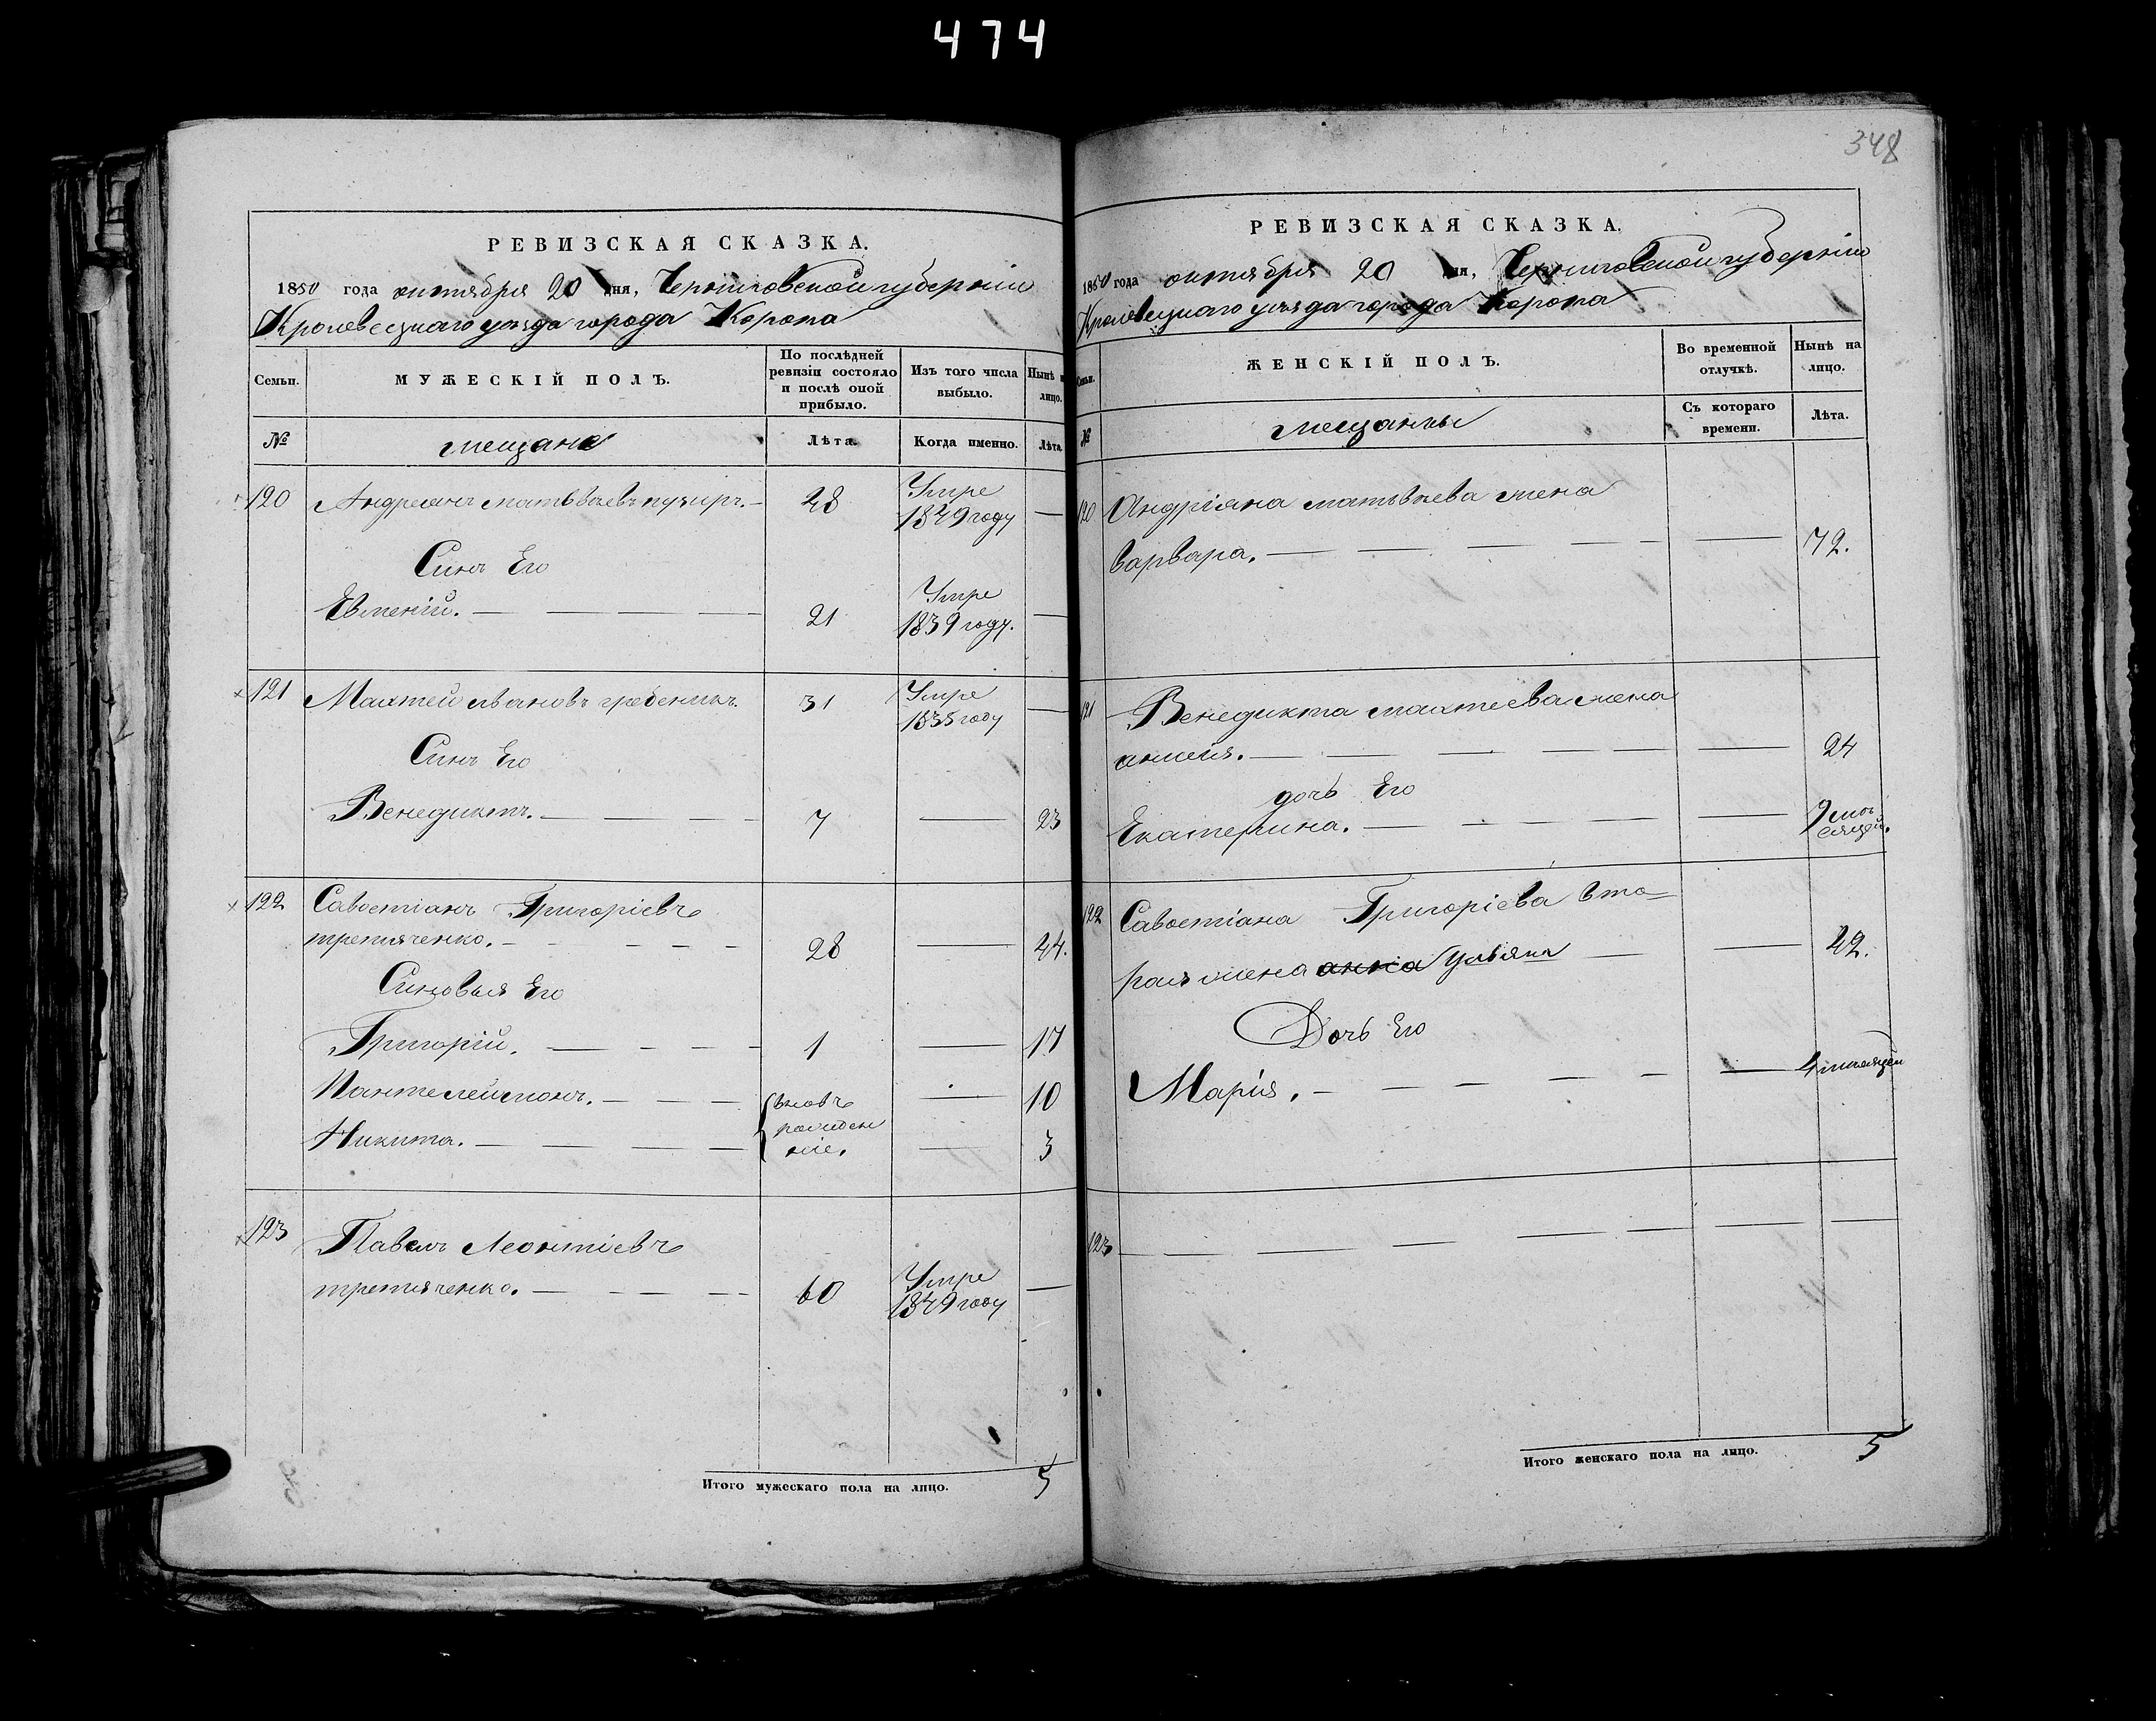 474
348
РЕВИЗСКАЯ СКАЗКА.
1850 года октября 20 дня, Черниговской губерніи
Кролевецкаго уезда города Коропа
Семьи.
МУЖЕСКІЙ ПОЛЪ.
По послѣдней ревизіи состояло и послѣ оной прибыло.
Изъ того числа выбыло.
Нынѣ на лицо.
№
мещане
Лѣта.
Когда именно.
Лѣта
120 Андреянъ матвѣевъ пузиръ. 48 Умре 1849 году
Синъ Его
Евмений. 21 Умре 1839 году.
121 Махтей ивановъ гребеникъ. 31 Умре 1835 году
Синъ Его
Венедиктъ. 7 23
122 Савостианъ Григоріевъ
третяченко. 28 44.
Синовья Его
Григорій. 1 17
Пантелеймонъ. 10
вновъ рожденніе.
Никита. 3
123 Павелъ Леонтіевъ
третяченко. 60 Умре 1849 году
Итого мужескаго пола на лицо. 5
РЕВИЗСКАЯ СКАЗКА.
1850 года октября 20 дня, Черниговской губерніи
Кролевецкаго уезда города Коропа
Семьи.
ЖЕНСКІЙ ПОЛЪ.
Во временной отлучкѣ.
Нынѣ на лицо.
№
мещанкы
Съ котораго времени.
Лѣта.
120 Андріяна матвѣева жена
варвара. 72.
121 Венедикта махтеева жена
24
дочь Его
Екатерина. 9 мѣсяцей.
122 Савостіана Григоріева вто-
рая жена анна Ульяна 42.
Дочь Его
Марія. 4 месяцей
123
Итого женскаго пола на лицо. 5